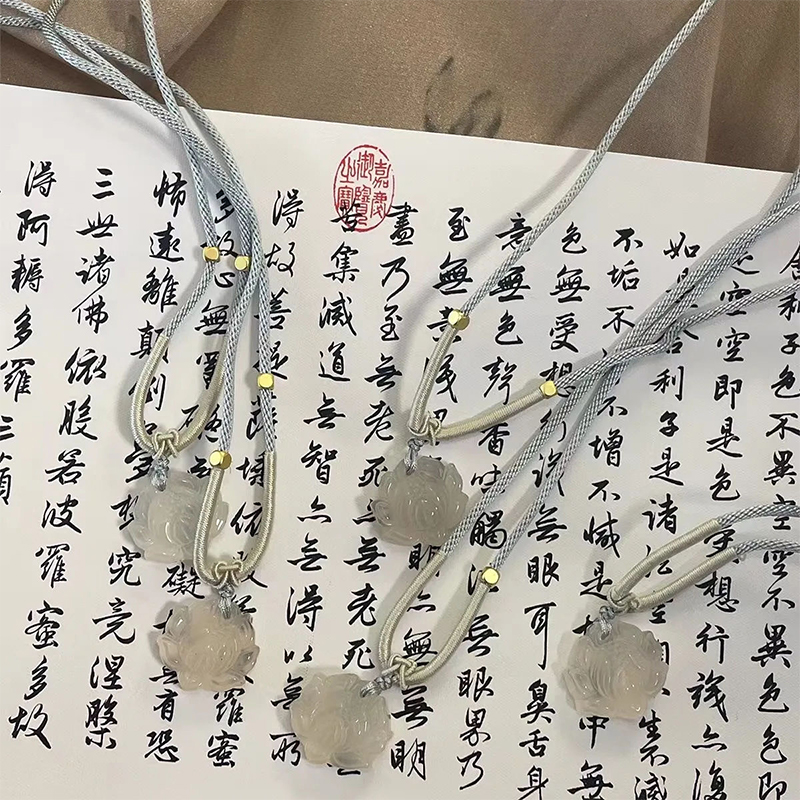 舍利子色不異空空不異色色即
是空空即是色想行識亦復
如是舍利子是諸法空不生不滅
不垢不不增不減是中無
色無受想行識無眼耳鼻舌身
意無色聲香味觸法無眼界乃
至無意識明亦無無明
盡乃至無老死無老死
苦集滅道無智亦無得以無所
得故菩提薩埵依羅蜜
多故心無罣礙礙無有恐
怖遠離顛倒夢想究竟涅槃
三世諸佛依般若波羅蜜多故
得阿耨多羅三藐
嘉慶御覽之寶